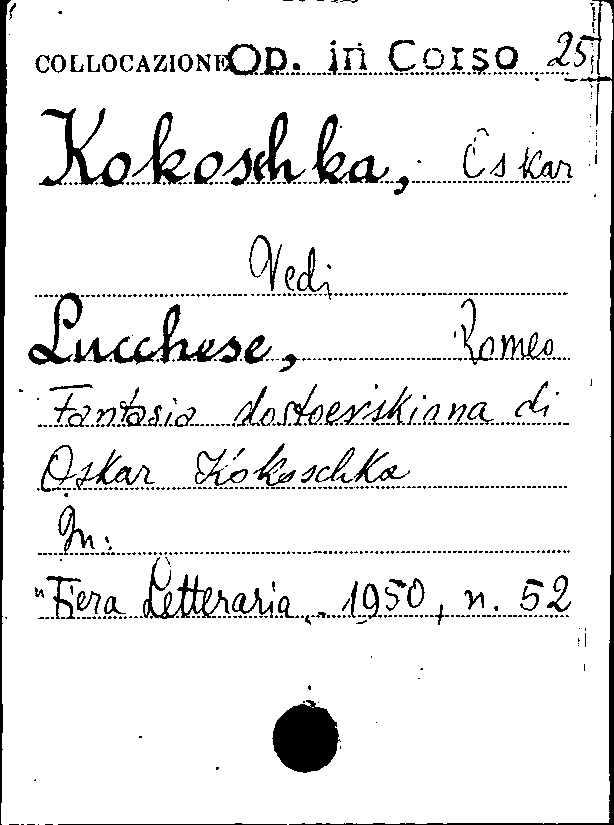 COLLOCAZIONE Op. in Corso 25
Kokoschka, Oskar
Vedi
Lucchese, Romeo
Fantasia dostoevskiana di
Oskar Kokoschka
In:
"Fiera Letteraria", 1950, n. 52